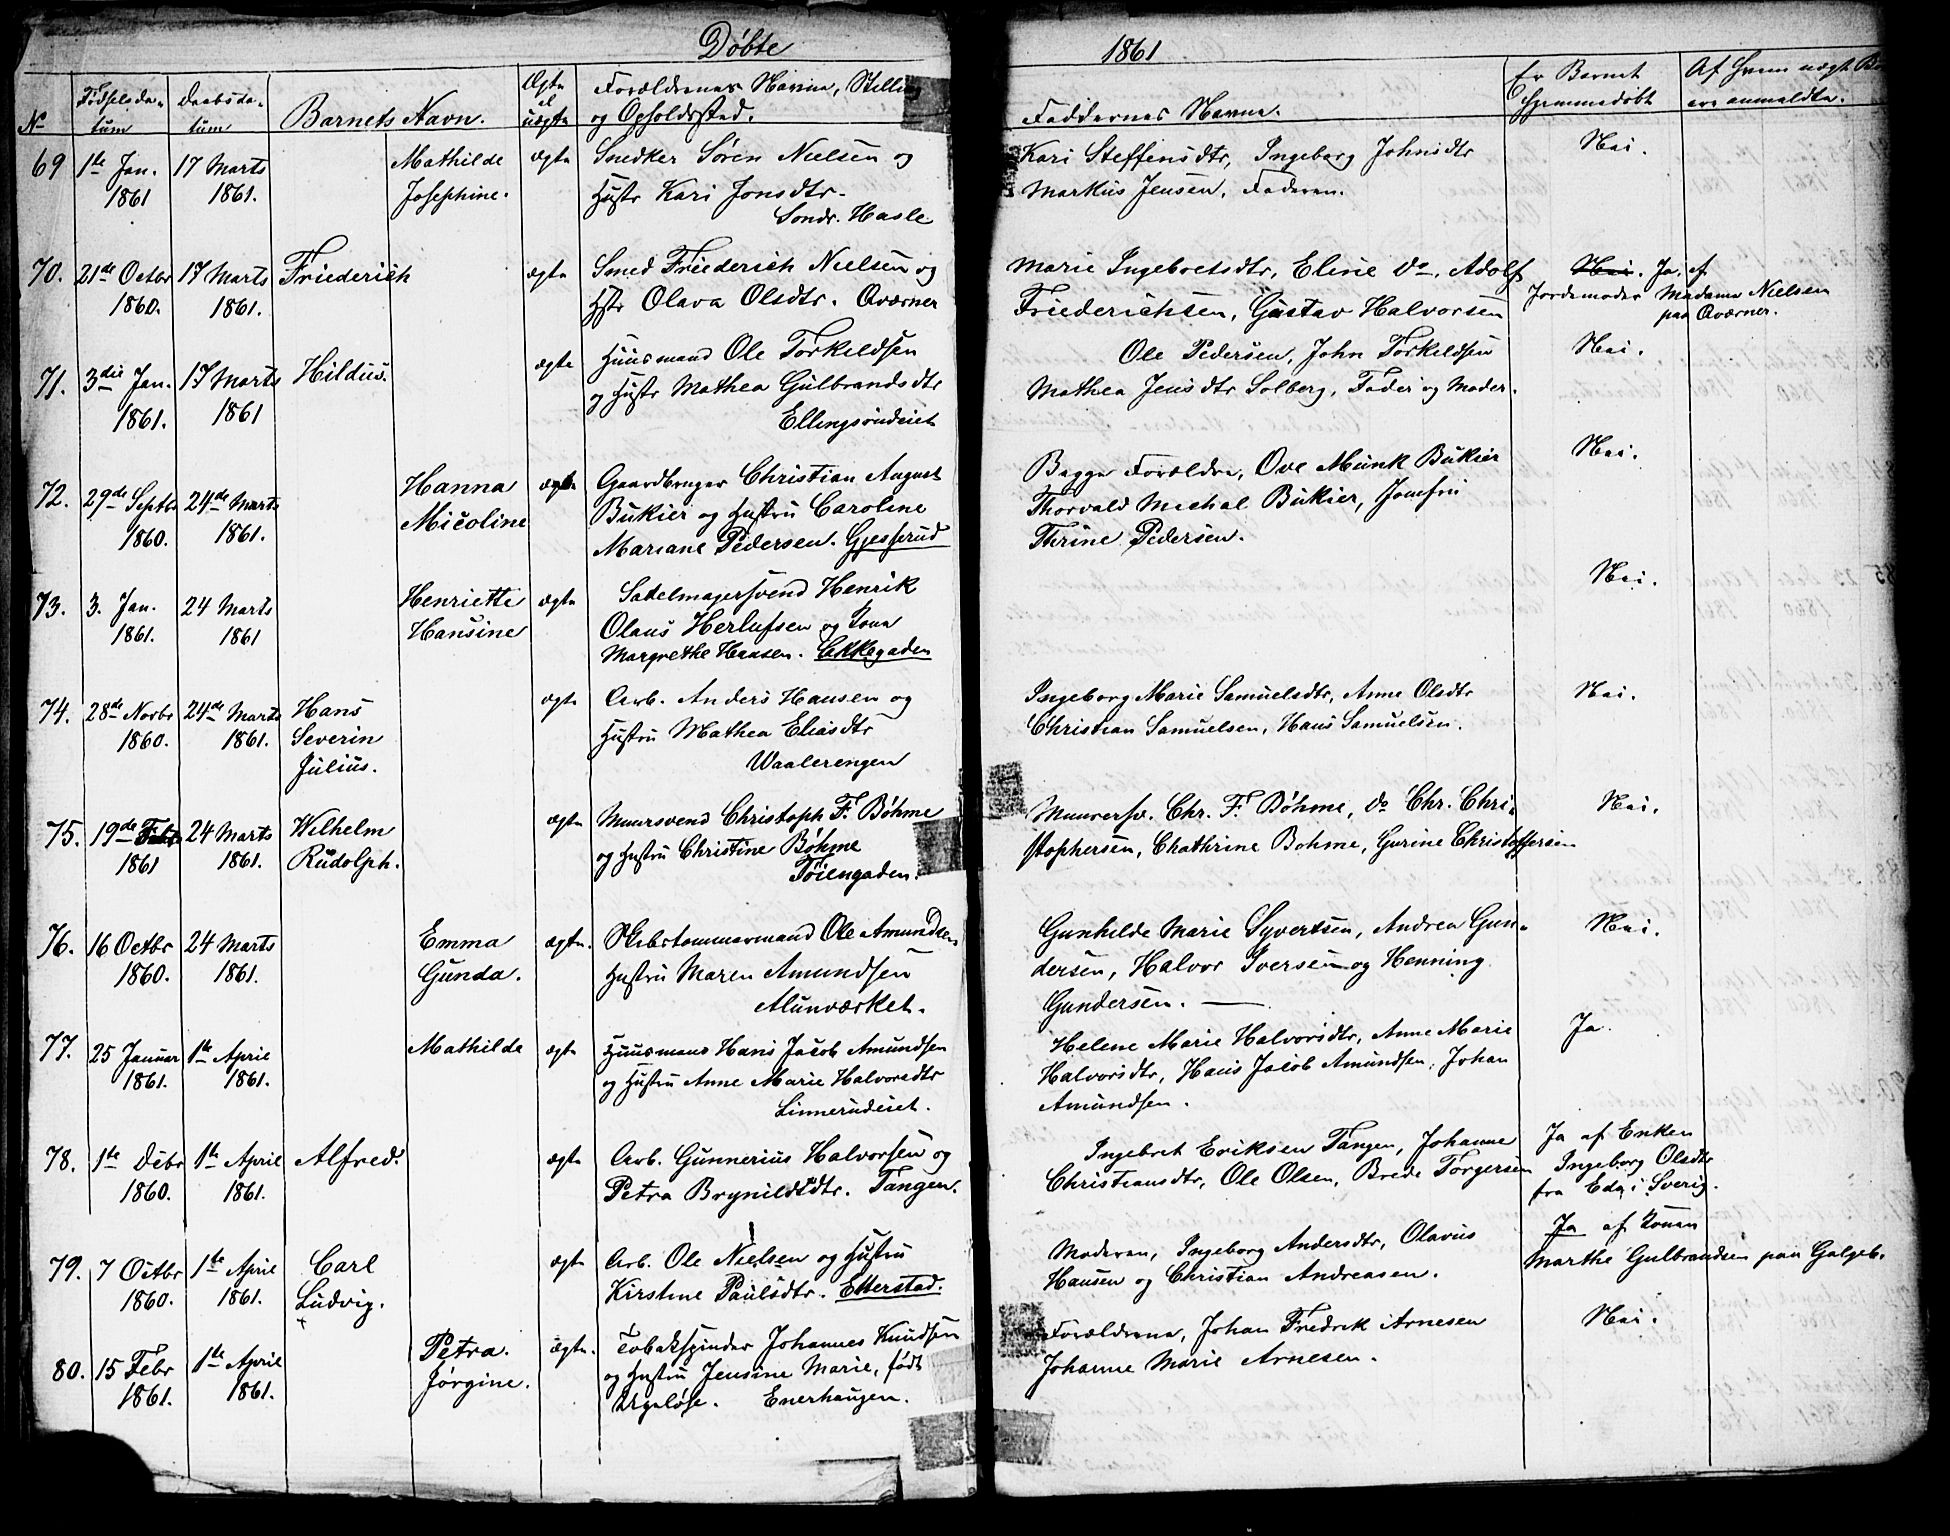 Døbte 1861
No
Fødselsda-
tum
Daabsda-
tum
Barnets Navn.
Ægte
el
uægte
Forældrenes Navne, Stilling
og Opholdssted.
Faddernes Navne.
Er Barnet
hjemmedøbt
Af Hvem uægt
ere anmeldte.
69 1te Jan. 17 Marts Mathilde ægte Snedker Søren Nielsen og Kari Steffensdtr, Ingeborg Johnsdtr Nei.
1861 1861. Josephine. Hustr Kari Jonsdtr. Markus Jensen, Faderen.
Sondr. Hasle
70. 21de Octbr 17 Marts Friederich ægte Smed Friederich Nielsen og Marie Ingebretsdtr, Eline Do, Adolf Nei. Ja, af
1860. 1861. Hstr Olava Olsdtr. Qværner Friederichsen, Gustav Halvorsen Jordemoder Madame Nielsen
paa Qværner.
71. 3die Jan. 17 Marts Hildus. ægte Huusmand Ole Torkeldsen Ole Pedersen, John Torkeldsen Nei.
1861. 1861 og Hustr Mathea Gulbrandsdtr Mathea Jensdtr Solberg, Fader og Moder.
Ellingsrudeiet
72. 29de Septbr 24de Marts Hanna ægte Gaardbruger Christian August Begge Forældre, Ove Munk Bukier Nei.
1860. 1861. Micoline Bukier og Hustru Caroline Thorvald Michal Bukier, Jomfru
Mariane Pedersen. Gjesserud Thrine Pedersen.
73. 3. Jan. 24 Marts Henriette ægte Sadelmagersvend Henrik Nei.
1861. 1861 Hansine Olaus Herlufsen og
Margrethe Hansen.
74. 28de Novbr 24de Marts Hans ægte Arb. Anders Hansen og Ingeborg Marie Samuelsdtr, Anne Olsdtr Nei.
1860. 1861. Severin Hustru Mathea Eliasdtr Christian Samuelsen, Hans Samuelsen.
Julius. Waalerengen
75. 19de Febr 24 Marts Wilhelm ægte Muursvend Christoph F. Bøhme Muursv. Chr. F. Bøhme, Do Chr. Chri- Nei.
1861 1861. Rudolph. og Hustru Christine Bøhme stophersen, Chathrine Bohme, Gurine Christoffersen
Tøiengaden.
76. 16 Octbr 24 Marts Emma ægte. Skibstømmermand Ole Amundsen Gunhilde Marie Syvertsen, Andrea Gun- Nei.
1860. 1861. Gunda. Hustru Maren Amundsen dersen, Halvor Iversen og Henning
Alunværket. Gundersen.
77. 25 Januar 1te April Mathilde ægte Huusmand Hans Jacob Amundsen Helene Marie Halvorsdtr, Anne Marie Ja.
1861. 1861. og Hustru Anne Marie Halvorsdtr Halvorsdtr, Hans Jacob Amundsen, Johan
Linnerudeiet. Amundsen.
78. 1te Debr 1te April Alfred. ægte Arb. Gunnerius Halvorsen og Ingebret Eriksen Tangen, Johanne Ja af Enken
1860. 1861. Petra Brynildsdtr. Tangen. Christiansdtr, Ole Olsen, Brede Torgersen Ingeborg Olsdtr
fra Eda i Sverig.
79. 7 Octbr 1te April Carl ægte Arb. Ole Nielsen og Hustru Moderen, Ingeborg Andersdtr, Olavus Ja af Konen
1860. 1861. Ludvig. Kirstine Paulsdtr. Etterstad. Hansen og Christian Andreasen. Marthe Gulbrandsen paa Galgeb.
80. 15 Febr 1te April Petra. ægte. Tobakspinder Johannes Knudsen Forældrene, Johan Fredrik Arnesen Nei.
1861. 1861. Jørgine. og Hustru Jensine Marie, født Johanne Marie Arnesen.
Enerhaugen.